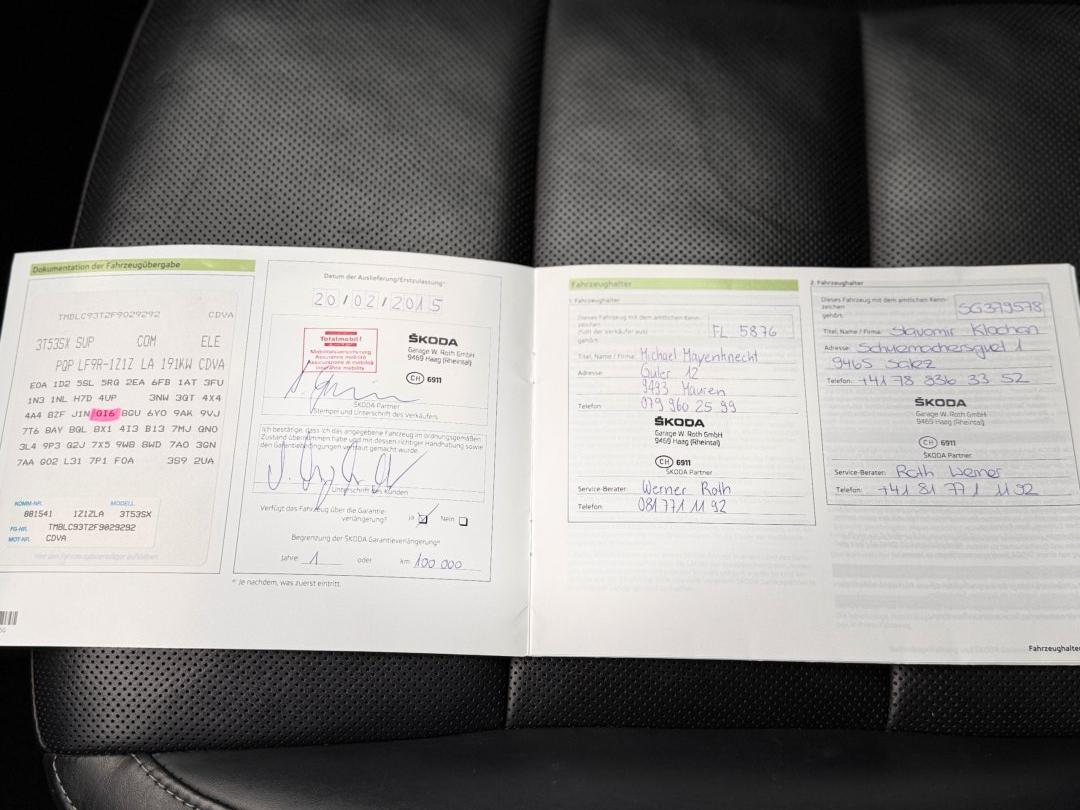 Dokumentation der Fahrzeugübergabe
TMBLC93T2F9029292 CDVA
3T53SX SUP COM ELE
PQP LF9R-1Z1Z LA 191KW CDVA
E0A 1D2 5SL 5RQ 2EA 6FB 1AT 3FU
1N3 1NL H7D 4UP 3NW 3GT 4X4
4A4 BZF J1N QI6 BGU 6Y0 9AK 9VJ
7T6 BAY BGL 8X1 4I3 B13 7MJ QN0
3L4 9P3 G2J 7X5 9WB 8WD 7A0 3GN
7AA G02 L31 7P1 F0A 3S9 2UA
KOMM-NR. MODELL
881541 1Z1ZLA 3T53SX
FG-NR. TMBLC93T2F9029292
MOT-NR. CDVA
Datum der Auslieferung/Erstzulassung*
20/02/2015
Totalmobil!
Mobilitätsversicherung
Assurance mobilité
Assicurazione di mobilità
Insurance mobility
ŠKODA
Garage W. Roth GmbH
9469 Haag (Rheintal)
CH 6911
ŠKODA Partner
Stempel und Unterschrift des Verkäufers
Ich bestätige, dass ich das angegebene Fahrzeug im ordnungsgemäßen
Zustand übernommen habe und mit dessen richtiger Handhabung sowie
den Garantiebedingungen vertraut gemacht wurde.
Unterschrift des Kunden
Verfügt das Fahrzeug über die Garantie-
verlängerung? Ja Nein
Begrenzung der ŠKODA Garantieverlängerung*
Jahre 1 oder km 100 000
* Je nachdem, was zuerst eintritt.
Fahrzeughalter
1. Fahrzeughalter
Dieses Fahrzeug mit dem amtlichen Kenn-
zeichen
(füllt der Verkäufer aus)
gehört: FL 5876
Titel, Name / Firma: Michael Mayenknecht
Adresse: Guler 12
9493 Mauren
Telefon: 079 960 25 99
ŠKODA
Garage W. Roth GmbH
9469 Haag (Rheintal)
CH 6911
ŠKODA Partner
Service-Berater: Werner Roth
Telefon: 081 771 11 92
2. Fahrzeughalter
Dieses Fahrzeug mit dem amtlichen Kenn-
zeichen
gehört: SG379578
Titel, Name / Firma: Slavomir Klochan
Adresse:
9465 Salez
Telefon: +41 78 836 33 52
ŠKODA
Garage W. Roth GmbH
9469 Haag (Rheintal)
CH 6911
ŠKODA Partner
Service-Berater: Roth Werner
Telefon: +41 81 771 11 92
Fahrzeughalter